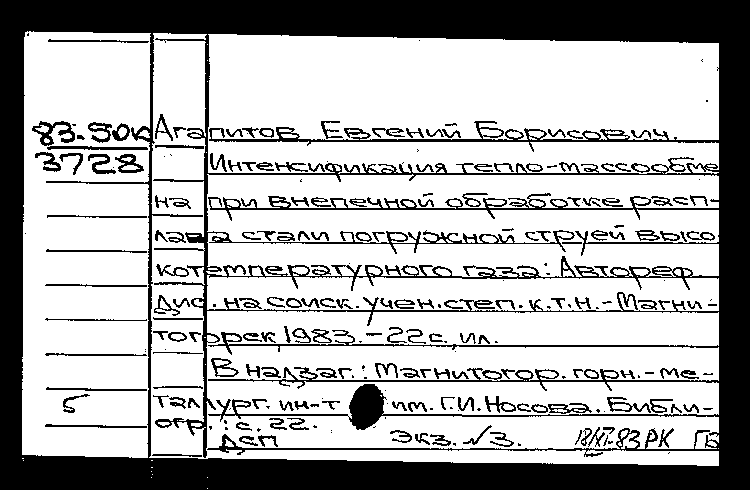 83.50к Агапитов, Евгений Борисович.
3728 Интенсификация тепло-массообме
на при внепечной обработке расп-
лава стали погружной струей высо
котемпературного газа: Автореф.
Дис. на соиск. учен. степ. к.т.н. - Магни-
тогорск, 1983. - 22с., ил.
В надзаг.: Магнитогор. горн.-ме-
5 таллург. ин-т им. Г.И. Носова. Библи-
огр.: с. 22.
ДСП Экз. √3. 18/XI-83 РК ГБ